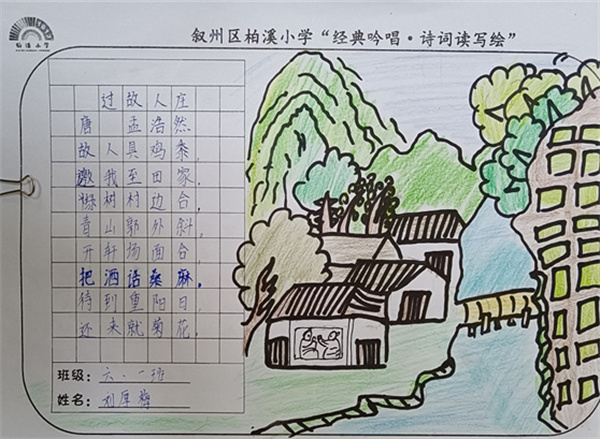 柏溪小学
叙州区柏溪小学“经典吟唱·诗词读写绘”
过故人庄
唐 孟浩然
故人具鸡黍,
邀我至田家,
绿树村边合,
青山郭外斜,
开轩场面合,
把酒话桑麻,
待到重阳日,
还来就菊花,
班级:六.一班
姓名:刘厚